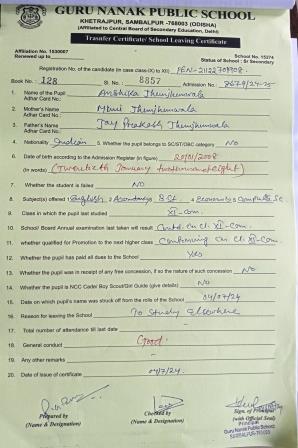 GURU NANAK PUBLIC SCHOOL
KHETRAJPUR, SAMBALPUR -768003 (ODISHA)
(Affiliated to Central Board of Secondary Education, Delhi)
Trasafer Certificate/ School Leaving Certificate
Affiliation No. 1530007 School No. 15274
Renewed up to Status of School : Sr Secondary
Registration No. of the candidate (in case class-IX to XII) PEN-21122708908
Book No. : 128 Sl. No. : 8857 Admission No. : 9679/24-25
1. Name of the Pupil Anshika Jhunjhunwala
Adhar Card No.
2. Mother's Name Jhunjhunwala
Adhar Card No.
3. Father's Name Jay Prakash Jhunjhunwala
Adhar Card No.
4. Nationality Indian 5. Whether the pupil belongs to SC/ST/OBC category No
6. Date of birth according to the Admission Register (in figure) 20/01/2008
(In words) (Twentieth January twothousandeight)
7. Whether the student is failed No
8. Subject(s) offered English Accountancy B.St. Economics Computer Sc
9. Class in which the pupil last studied XI-Com.
10. School/ Board Annual examination last taken with result Contd. in cl. XI-Com.
11. whether qualified for Promotion to the next higher class Continuing in cl. XI-Com
12. Whether the pupil has paid all dues to the School Yes
13. Whether the pupil was in receipt of any free concession, if so the nature of such concession No
14. Whether the pupil is NCC Cadet/ Boy Scout/Girl Guide (give details) No
15. Date on which pupil's name was struck off from the rolls of the School 04/07/24
16. Reason for leaving the School To Study Elsewhere
17. Total number of attendance till last date -
18. General conduct Good.
19. Any other remarks -
20. Date of issue of certificate 04/7/24.
Prepared by Checked by Sign. of Principal
(Name & Designation) (Name & Designation) (with Official Seal)
Principal
Guru Nanak Public School
SAMBALPUR-768003